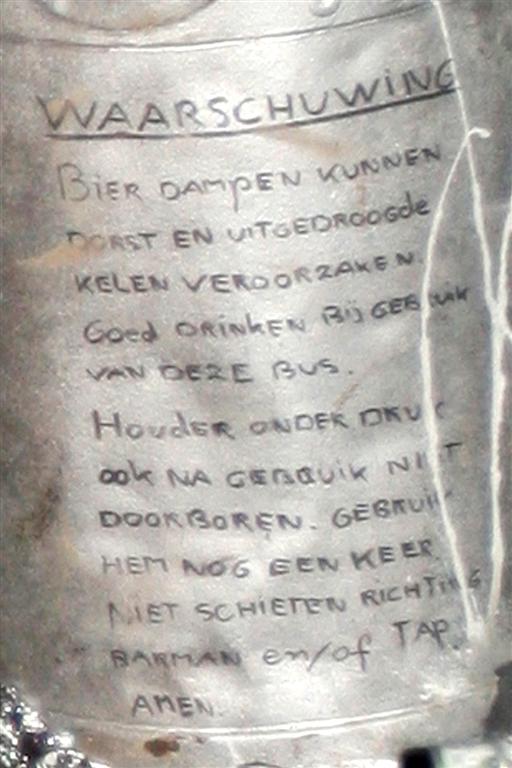 WAARSCHUWING
BIER DAMPEN KUNNEN
DORST EN UITGEDROOGde
KELEN VEROORZAKEN.
Goed DRINKEN BIJ GEBRUIK
VAN DEZE BUS.
HOUdER ONDER DRUK
ook NA GEBRUIK NIET
DOORBOREN. GEBRUIK
HEM NOG EEN KEER
NIET SCHIETEN RICHTING
BARMAN en/of TAP.
AMEN.